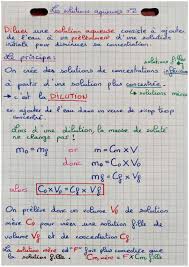 Les solutions aqueuses n°2
Diluer une solution aqueuse consiste à ajouter
de l'eau à un prélèvement d'une solution
initiale pour diminuer sa concentration.
Le principe :
solutions filles
On crée des solutions de concentrations inférieures
à partir d'une solution plus concentrée.
solution mère
→ c'est la DILUTION
en ajoutant de l'eau dans un verre de sirop trop
concentré.
Lors d'une dilution, la masse de soluté
ne change pas !
m₀ = mf or m = Cm x V
donc m₀ = C₀ x V₀
et mf = Cf x Vf
alors C₀ x V₀ = Cf x Vf
On prélève donc un volume V₀ de solution
mère C₀ pour avoir une solution fille de
volume Vf et de concentration Cf.
La solution mère est "F" fois plus concentrée que
la solution fille. Cm, mère = F x Cm, fille